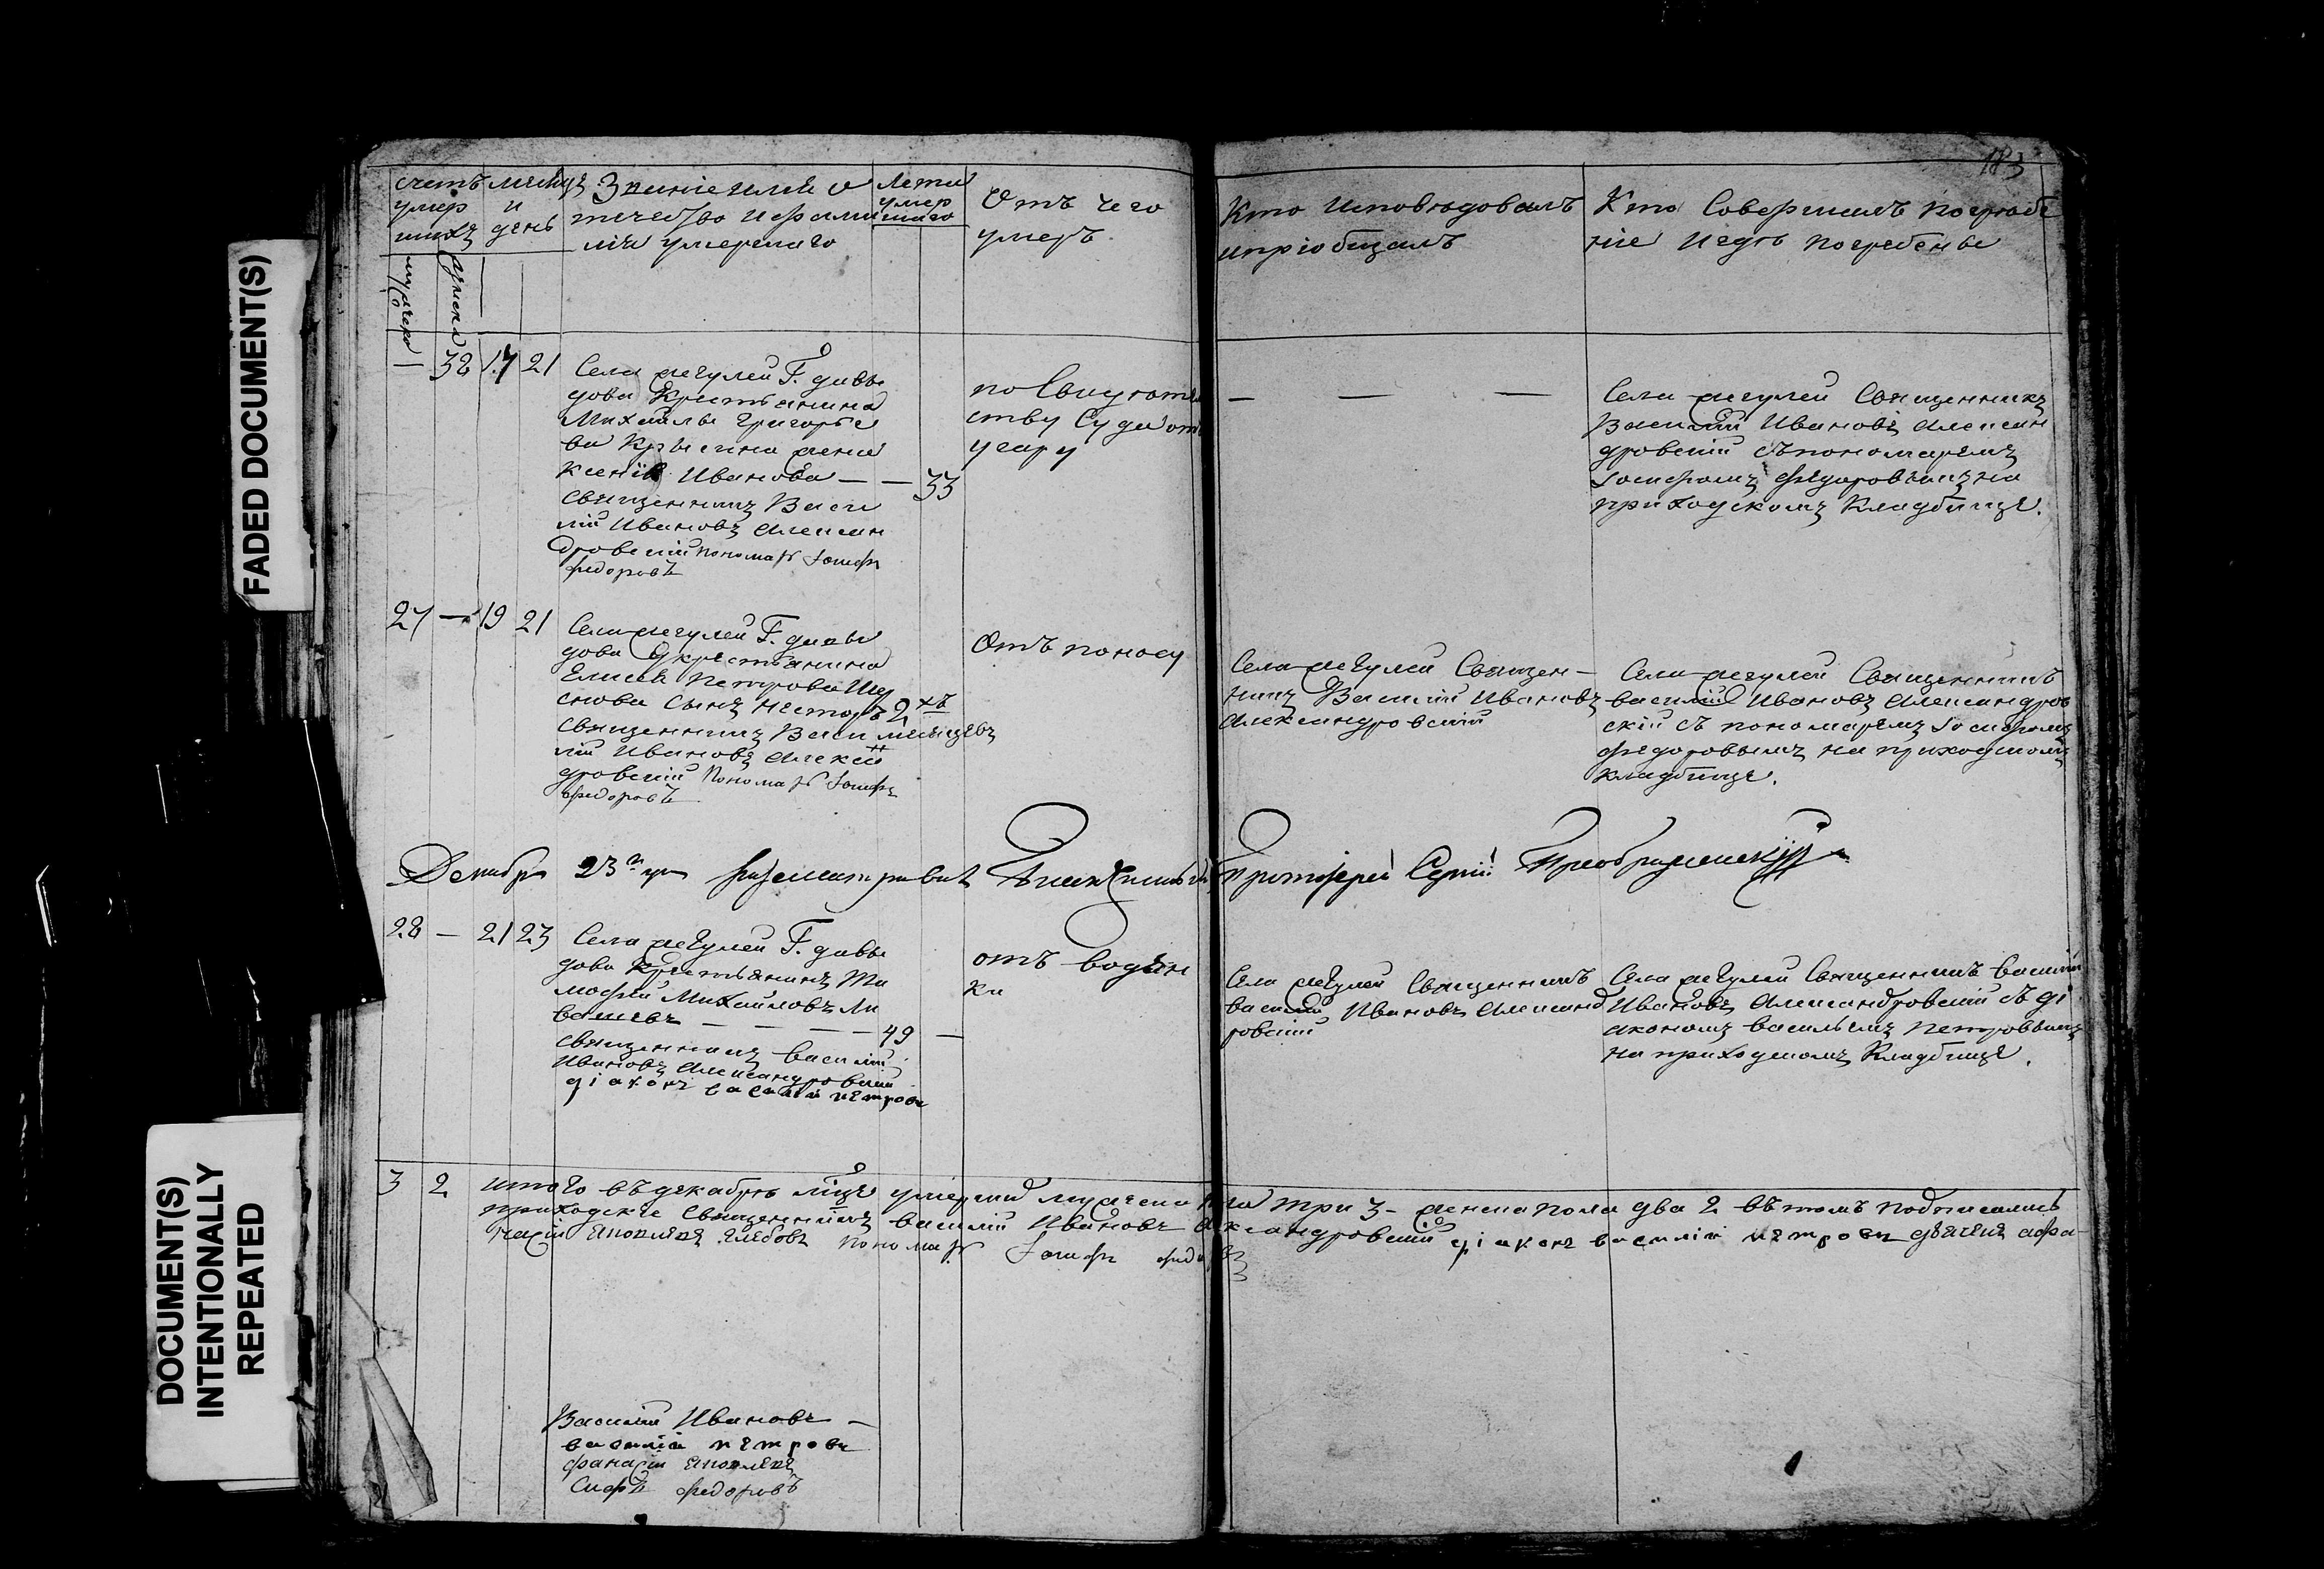 FADED DOCUMENT(S)
DOCUMENT(S)
INTENTIONALLY
REPEATED
183
счетъ
умер
шихъ
мужеска
женска
месяцъ
и
день
Званіе имя и о
течество и фами
лія умершаго
лета
умер
шаго
Отъ чего
умеръ
Кто исповѣдовалъ
и пріобщалъ
Кто совершалъ погребе
ніе и гдѣ погребены
— 32 17 21
Села жегулей Г. давы
дова Крестьянина
Михаилы Григорье
ва Крысина жена
Ксенія Иванова — — 33
священникъ Васи
лій Ивановъ Алексан
дровскій пономарь Іосифъ
федоровъ
по Свидѣтел
ству Суда отъ
угару
— — —
Села жегулей Священникъ
Василій Ивановъ Алексан
дровскій съ пономаремъ
Іосифомъ Федоровымъ на
приходскомъ Кладбище.
27 — 19 21
Села жегулей Г. давы
дова крестьянина
Елисея Петрова
сынъ Несторъ 2хъ
месяцевъ
священникъ Васи
лій Ивановъ Алексан
дровскій Пономарь Іосифъ
федоровъ
Отъ поносу
Села жегулей Священ-
никъ Василій Ивановъ
Александровскій
Села жегулей Священникъ
василій Ивановъ Александров
скій съ пономаремъ Іосифомъ
Федоровымъ на приходскомъ
кладбище.
Декабря 23го дня разсматривалъ Протоіерей Сергій Преображенскій
28 — 21 23
Села жегулей Г. давы
дова Крестьянинъ Ти
мофей Михаиловъ Ли
вашевъ — — — — 49 —
священникъ василій
Ивановъ Александровскій
діаконъ василій петровъ
отъ водян
ки
Села жегулей Священникъ
василій Ивановъ Александ
ровскій
Села жегулей Священникъ василій
Ивановъ Александровскій съ ді
акономъ васильемъ петровымъ
на приходскомъ Кладбище.
3 2 итого въ декабрѣ мцѣ умерши мужеска пола три 3 - женска пола два 2 въ томъ подписались
приходскіе Священникъ василій Ивановъ Александровскій діаконъ василій петровъ дьячекъ афа
насій глебовъ пономарь Іосифъ федоровъ
Василій Ивановъ —
василій петровъ
фанасій
Сифъ федоровъ